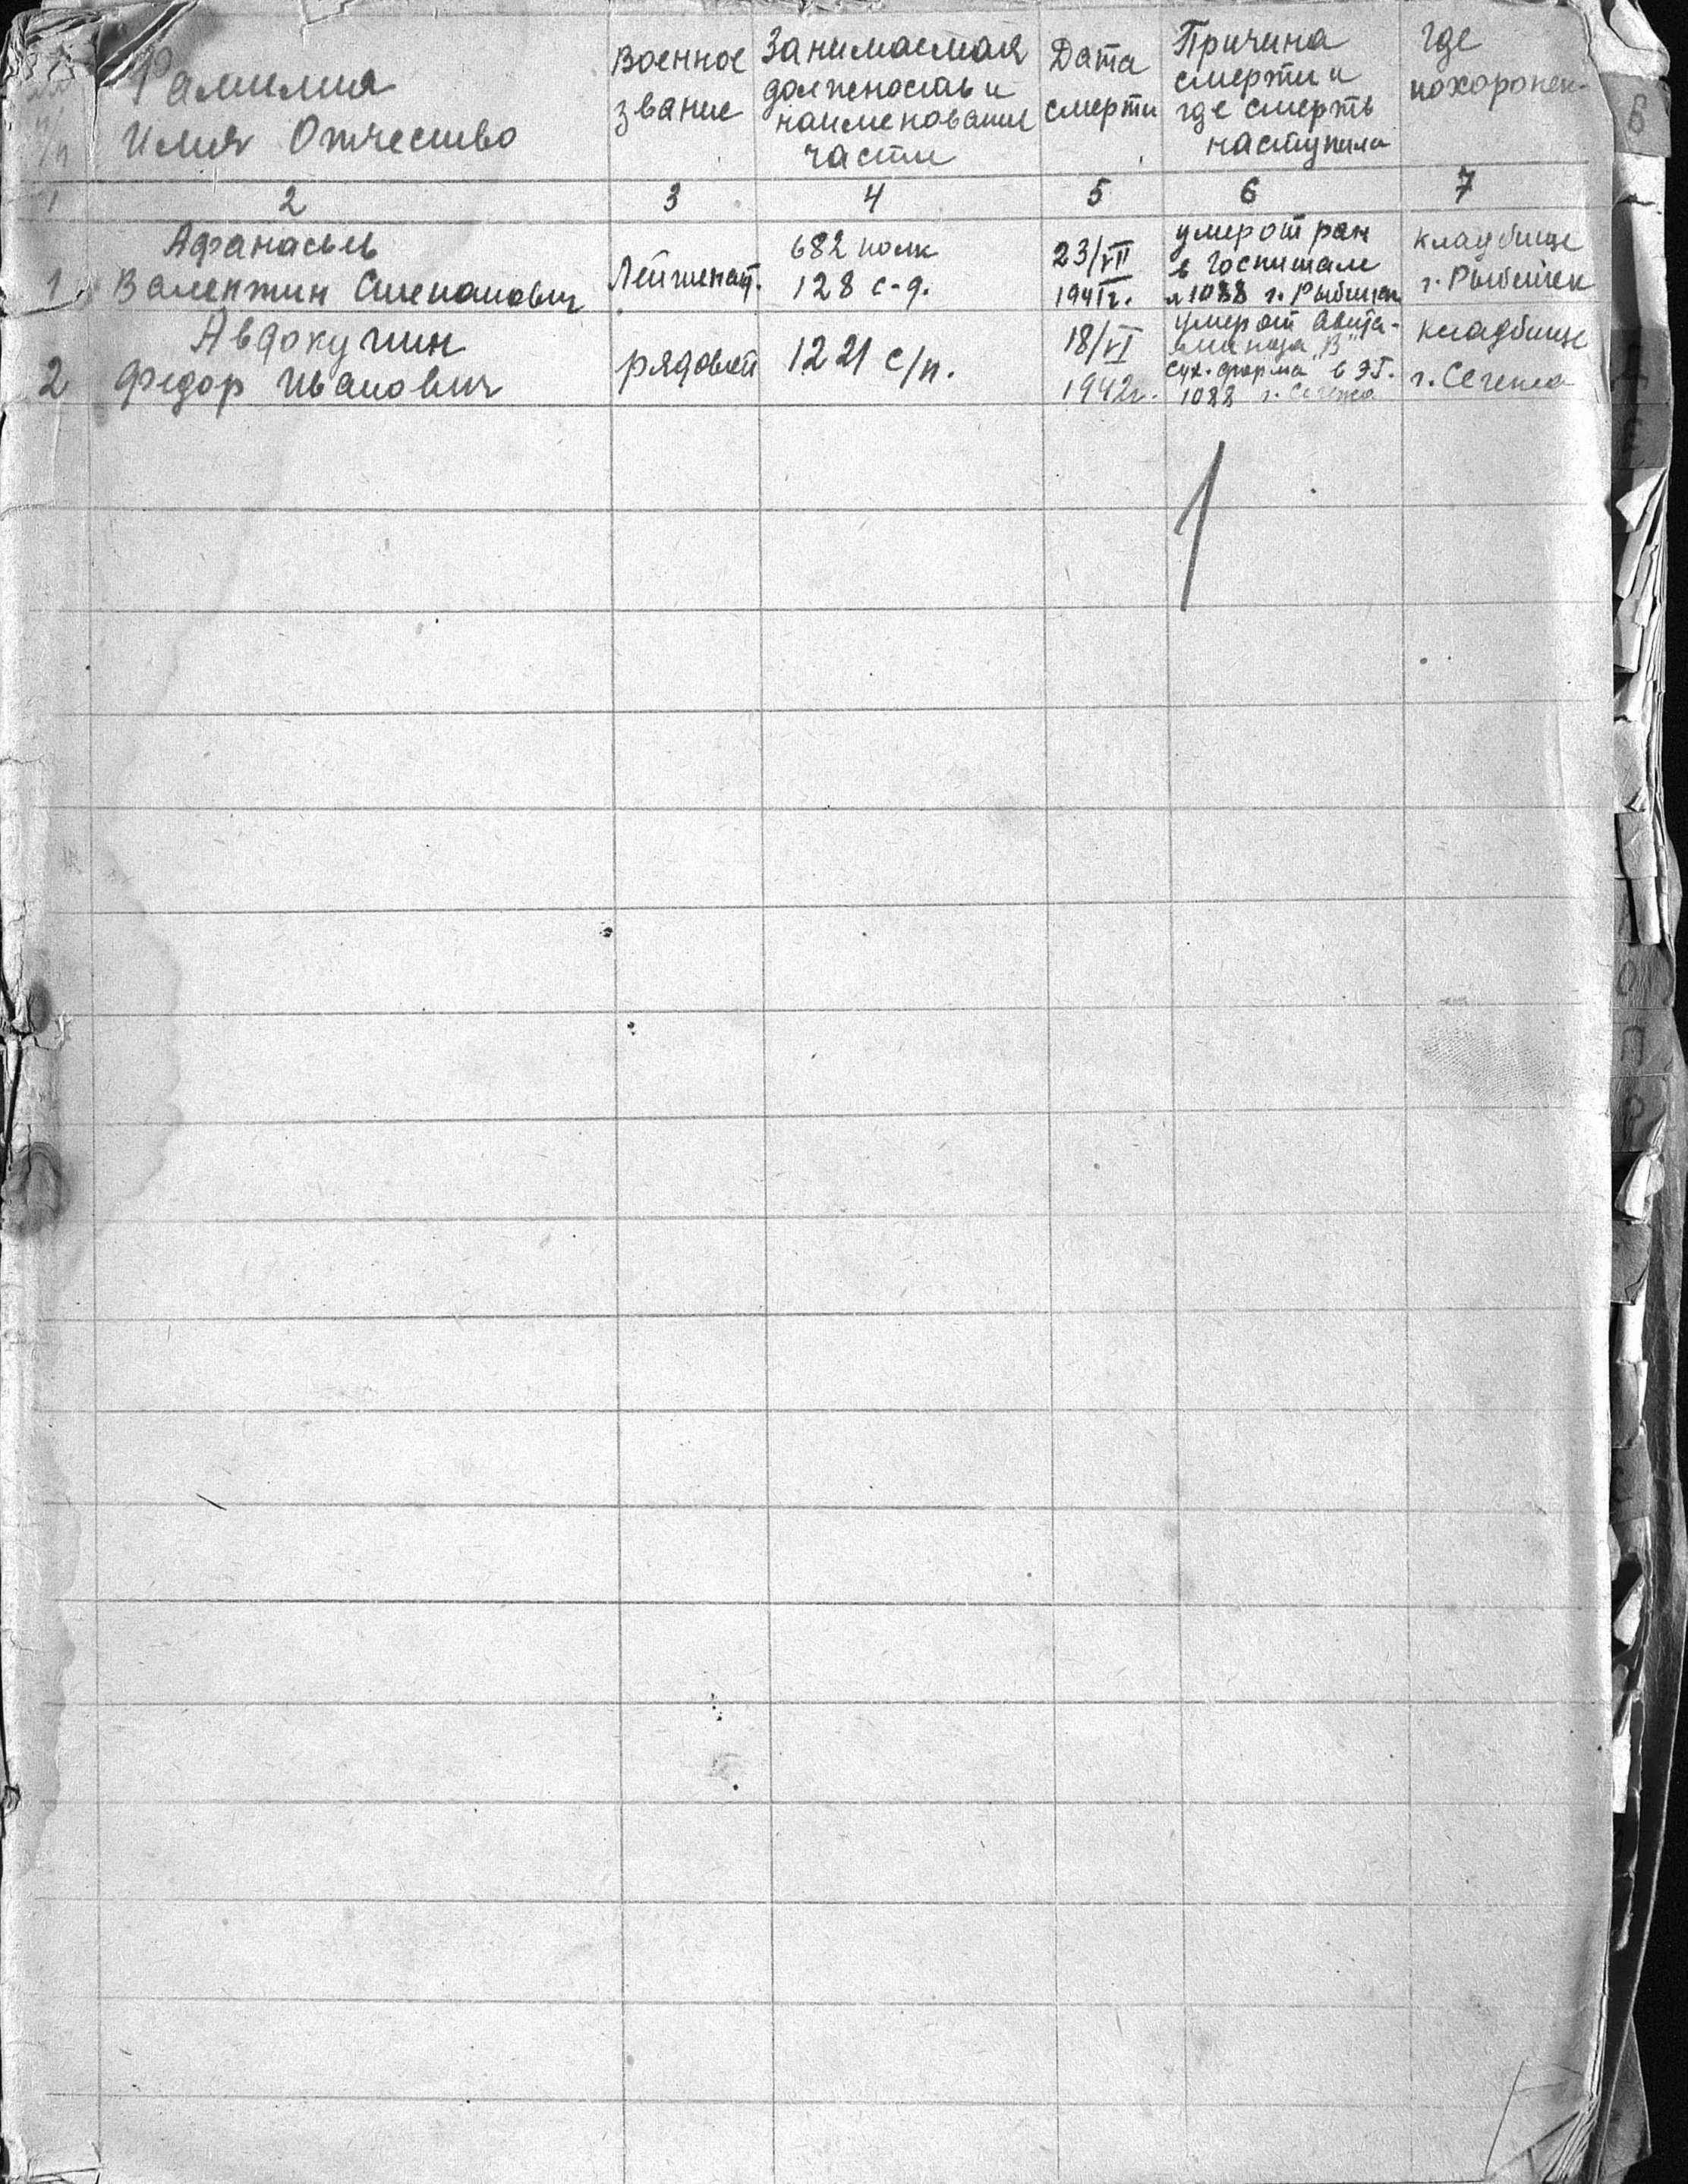 №№ п/п
Фамилия
Имя Отчество
Военное
звание
Занимаемая
должность и
наименование
части
Дата
смерти
Причина
смерти и
где смерть
наступила
где
похоронен
1 2 3 4 5 6 7
1
Афанасьев
Валентин Степанович
Лейтенат.
682 полк
128 с-д.
23/VII
1941г.
умер от ран
в госпитале
1088 г. Рыбинск
кладбище
г. Рыбинск
2
Авдокучин
Федор Иванович
рядовой
1221 с/п.
18/VI
1942г.
умер от авита-
миноза "В"
сух. форма в ЭГ.
1088 г. Сегежа
кладбище
г. Сегежа
1
В
Д
Е
О
П
Р